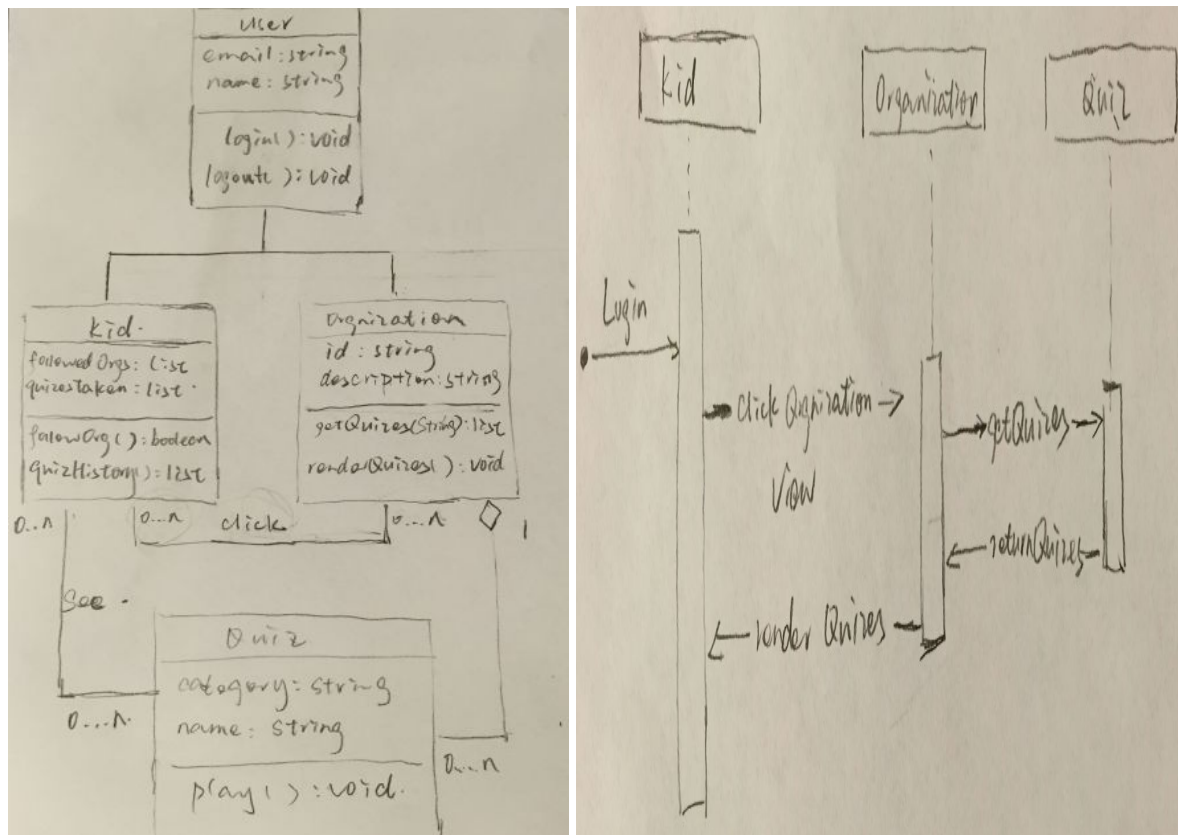 User
email: string
name: string
login(): void
logout(): void
Kid.
followedOrgs: List
quizesTaken: list.
followOrg(): boolean
quizHistory(): list
Orgnization
id: string
description: string
getQuizes(String): list
renderQuizes(): void
0...n
0...n
click
0...n
1
See.
Quiz
category: string
name: string
play(): void.
0...n
0...n
Kid
Organization
Quiz
Login
click Orgnization
View
getQuizes
returnQuizes
render Quizes